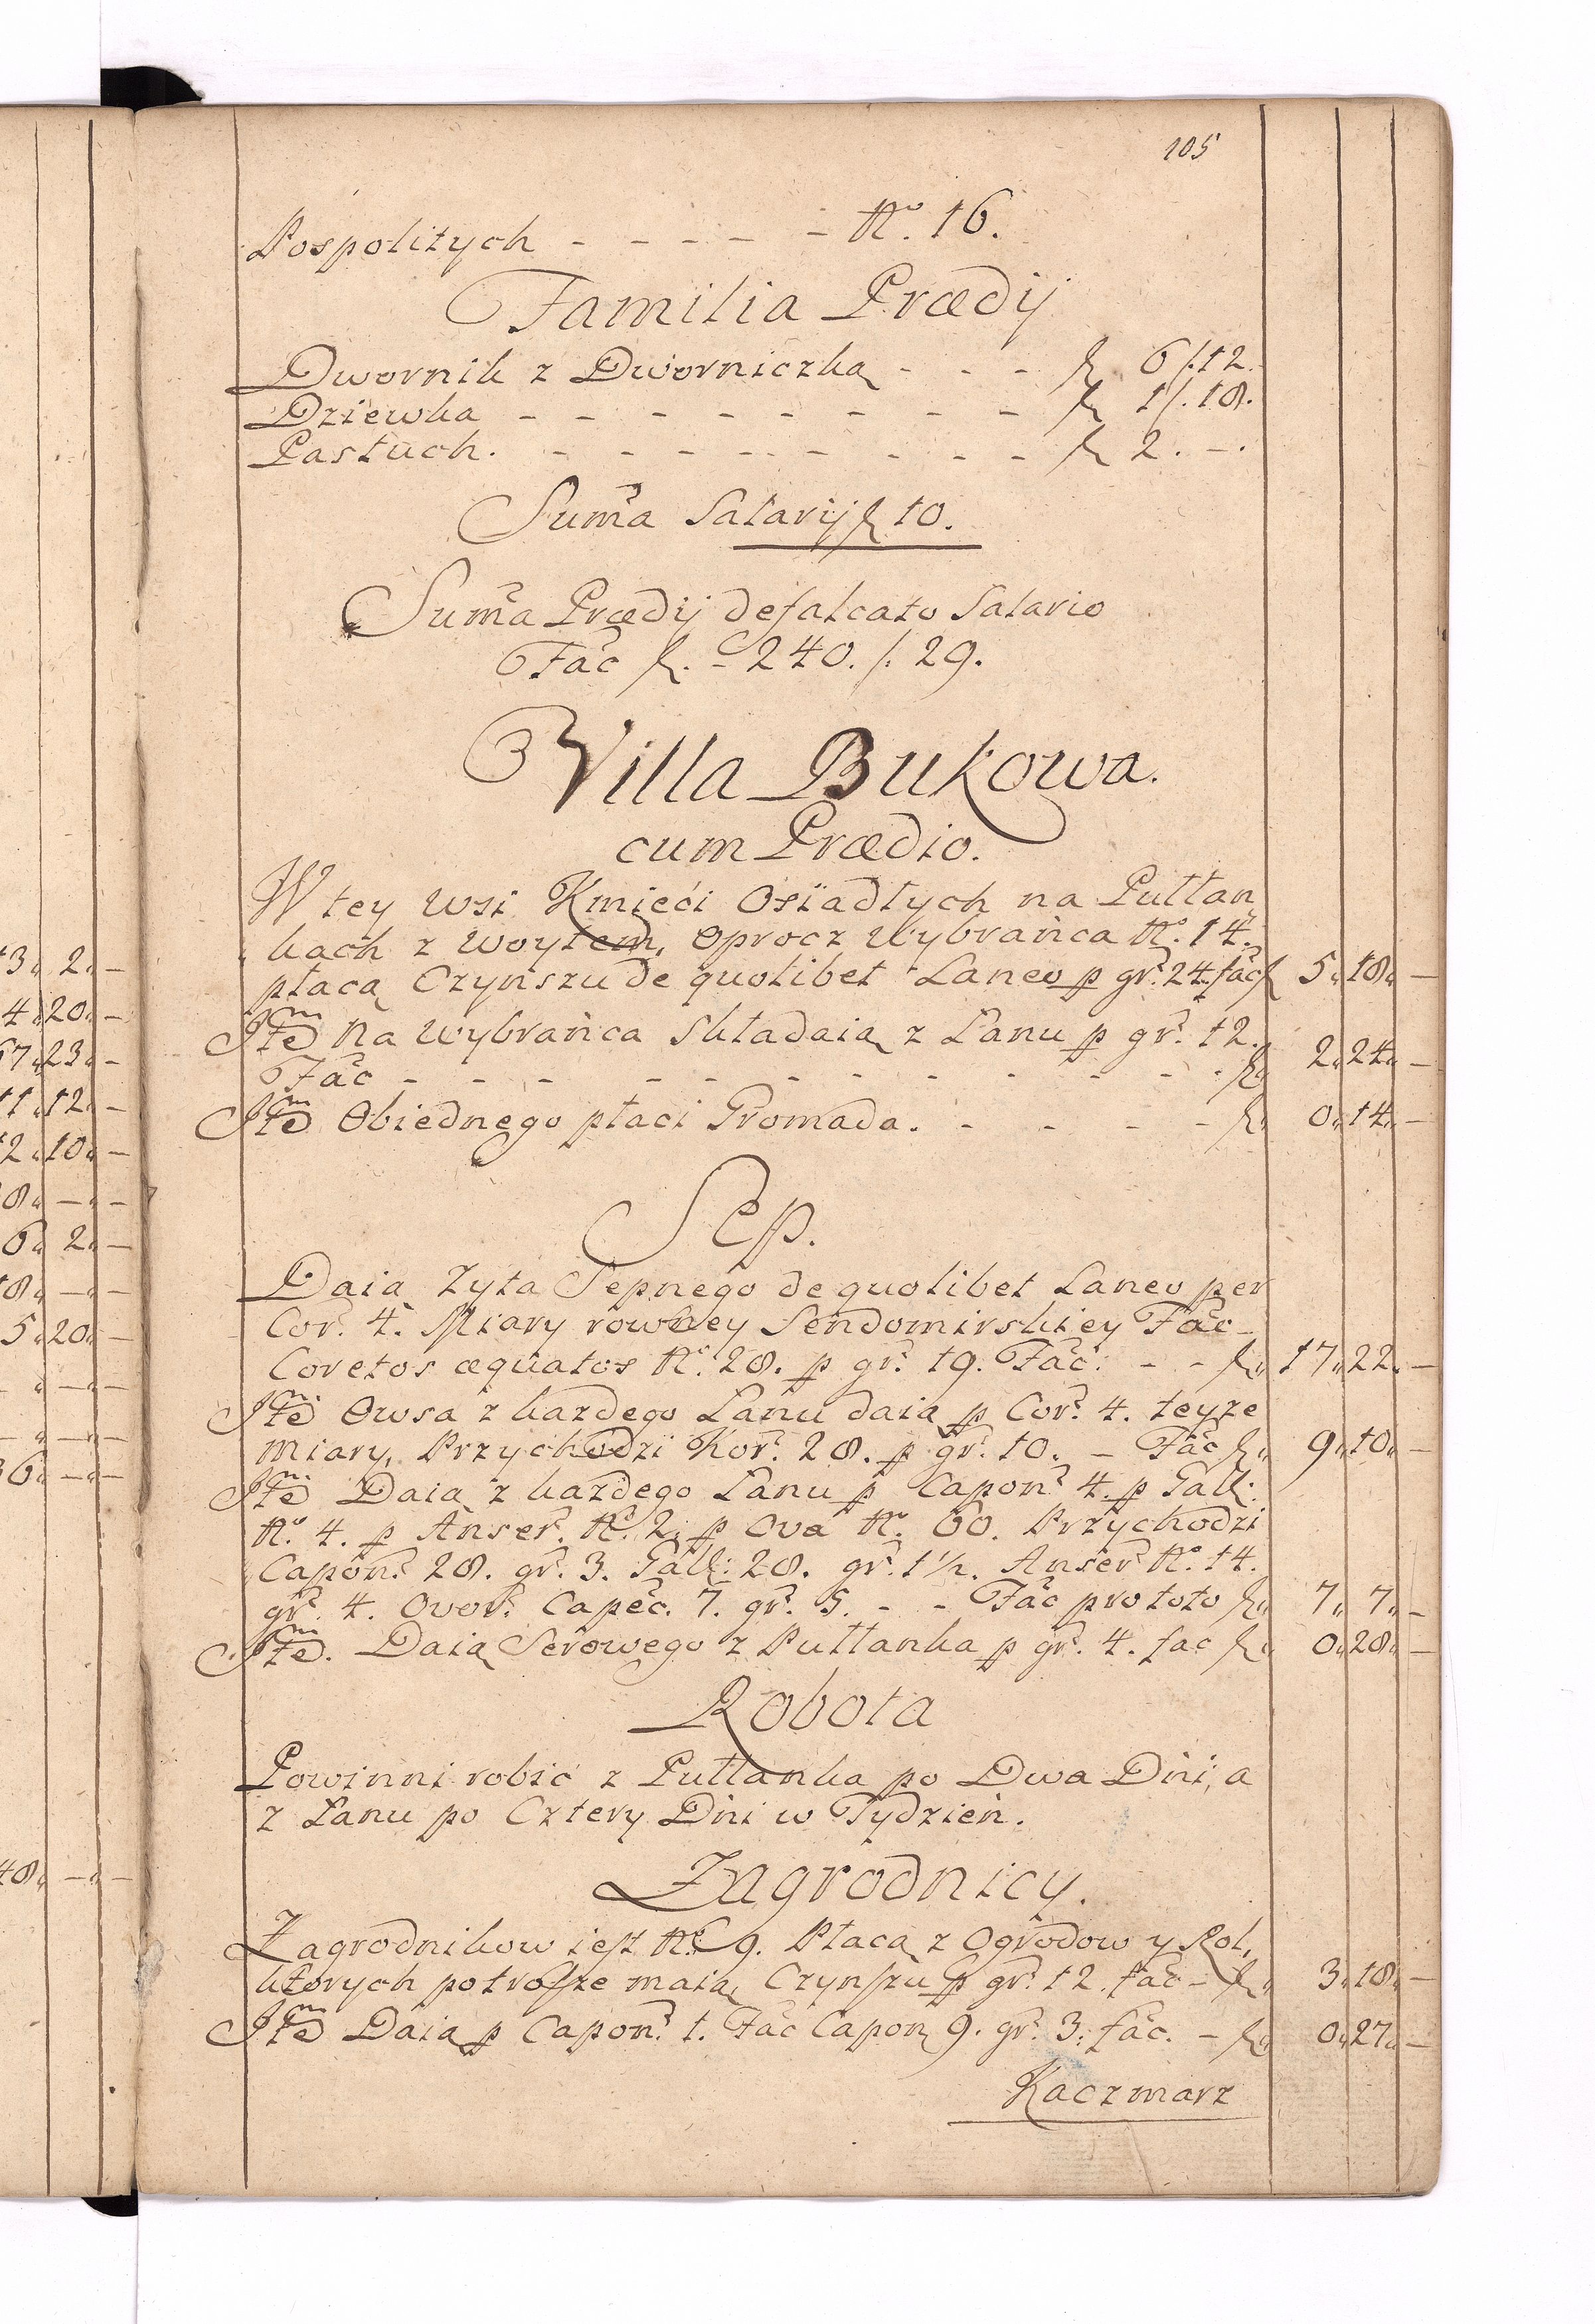 105
Pospolitych - - - - - No. 16.
Familia Prædij
Dwornik z Dworniczką - - - fl 6/.12.
Dziewka - - - - - - - - fl 1/.18.
Pastuch. - - - - - - - fl 2. -.
Suma Salarij fl 10.
Suma Prædij defalcato Salario
Fac fl. - 240. /. 29.
Villa Bukowa.
cum Prædio.
W tey wsi Kmieći Osiadłych na Pułłan
kach z woytem, oprocz Wybrańca No. 14.
płacą Czynszu de quolibet Laneo p gr. 24. fac fl 5 18 -
Itẽ na wybrańca składaią z Łanu p gr. 12.
Fac - - - - - - - - - - - fl 2 24 -
Itẽ Obiednego płaci Gromada. - - - - fl 0 14 -
Sep.
Daią Zyta Sepnego de quolibet Laneo per
Cor. 4. Miary rowney Sendomirskiey Fac
Coretos æquatos No. 28. p gr. 19. Fac. - - fl 17 22 -
Itẽ Owsa z kazdego Łanu daią p Cor. 4. teyze
miary, Przychodzi Kor. 28. p gr. 10. - Fac fl 9 10 -
Itẽ Daią z kazdego Łanu p Capon. 4. p Gall.
No. 4. p Anser. No. 2. p Ova No. 60. Przychodzi
Capon. 28. gr. 3. Gall. 28. gr. 1 1/2. Anser. No. 14.
gr. 4. Ovor. Capec. 7. gr. 5. - - Fac pro toto fl 7 7 -
Itẽ. Daią Serowego z Pułłanka p gr. 4. fac fl 0 28 -
Robota
Powinni robić z Pułłanka po Dwa Dni, a
z Łanu po Cztery Dni w Tydzień.
Zagrodnicy.
Zagrodnikow iest No. 9. Płacą z Ogrodow y Rol,
ktorych potrosze maią, Czynszu p gr. 12. fac - fl 3 18 -
Itẽ Daią p Capon. 1. Fac Capon 9. gr. 3. fac. - fl 0 27 -
Kaczmarz
13 2 -
4 20 -
67 23 -
11 12 -
12 10 -
8 - -
6 2 -
18 - -
5 20 -
- - -
- - -
36 - -
48 - -